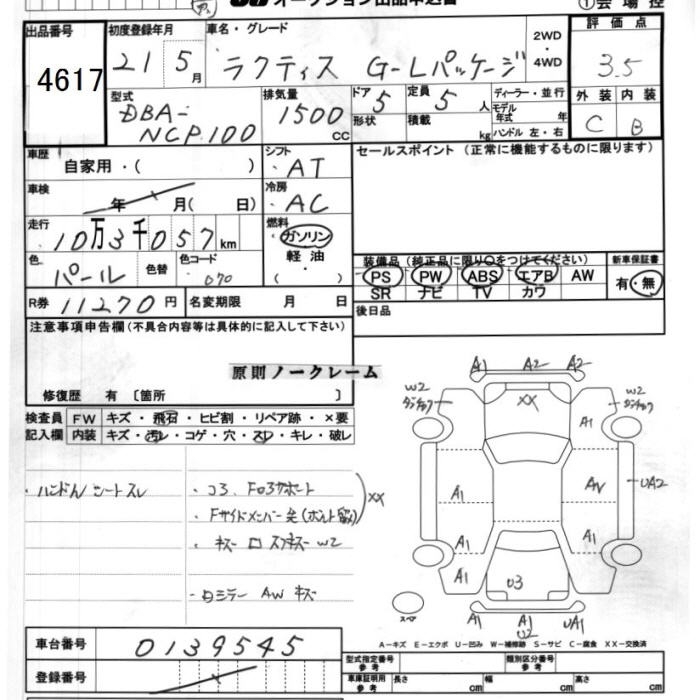 オークション出品申込書
①会場控
出品番号
4617
初度登録年月
21 5月
車名・グレード
ラクティス G-Lパッケージ
2WD
・
4WD
評価点
3.5
型式
DBA-
NCP100
排気量
1500
CC
ドア
5
形状
定員
5 人
積載
kg
ディーラー・並行
モデル年式 年
ハンドル 左・右
外装
C
内装
B
車歴
自家用・( )
シフト
AT
セールスポイント (正常に機能するものに限ります)
車検
年 月( 日)
冷房
AC
走行
10万3千057km
燃料
ガソリン
軽油
( )
色
パール
色替
色コード
070
装備品 (純正品に限り○をつけてください)
PS PW ABS エアB AW
SR ナビ TV カワ
新車保証書
有・無
R券 11270円
名変期限 月 日
後日品
注意事項申告欄(不具合内容等は具体的に記入して下さい)
原則ノークレーム
修復歴 有 〔箇所 〕
検査員
記入欄
FW キズ・飛石・ヒビ割・リペア跡・×要
内装 キズ・汚レ・コゲ・穴・スレ・キレ・破レ
・ハンドル シートスレ
・コ3、Fロアサポート
XX
・キズ
W2
AW キズ
A1 A2 A2
W2
W2
XX
A1
A1
AW
UA2
A1
A1
A1
U3
スペア
A1
A1
U2
UA1
A－キズ E－エクボ U－凹み W－補修跡 S－サビ C－腐食 XX－交換済
車台番号 0139545
登録番号
型式指定番号
参考
類別区分番号
参考
車庫証明用
参考
長さ cm
幅 cm
高さ cm